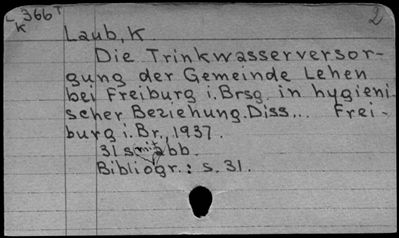 L 366T 2
K
Laub, K.
Die Trinkwasserversor-
gung der Gemeinde Lehen
bei Freiburg i. Brsg. in hygieni-
scher Beziehung. Diss... Frei-
burg i. Br., 1937.
31 s. mit Abb.
Bibliogr.: s. 31.